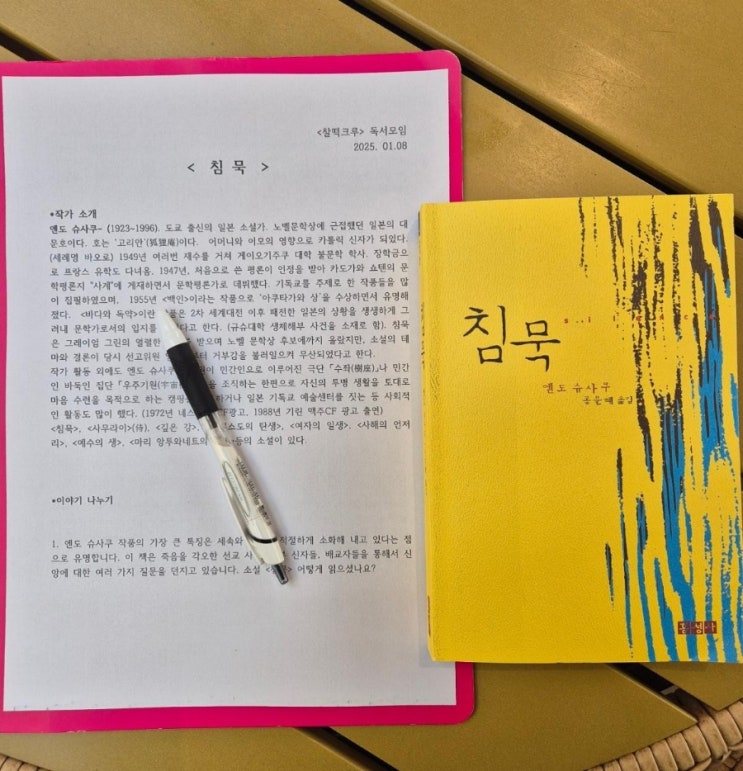 <찰떡크루> 독서모임
2025. 01.08
< 침 묵 >
*작가 소개
엔도 슈사쿠- (1923-1996). 도쿄 출신의 일본 소설가. 노벨문학상에 근접했던 일본의 대
문호이다. 호는 '고리안'(狐狸庵)이다. 어머니와 이모의 영향으로 카톨릭 신자가 되었다.
(세례명 바오로) 1949년 여러번 재수를 거쳐 게이오기주쿠 대학 불문학 학사. 장학금으
로 프랑스 유학도 다녀옴. 1947년, 처음으로 쓴 평론이 인정을 받아 카도가와 쇼텐의 문
학평론지 "사계"에 게재하면서 문학평론가로 데뷔했다. 기독교를 주제로 한 작품들을 많
이 집필하였으며, 1955년 <백인>이라는 작품으로 '아쿠타가와 상'을 수상하면서 유명해
졌다. <바다와 독약>이란 2차 세계대전 이후 패전한 일본의 상황을 생생하게 그
려내 문학가로서의 입지를 다고 한다. (규슈대학 생체해부 사건을 소재로 함). 침묵
은 그레이엄 그린의 열렬한 받으며 노벨 문학상 후보에까지 올랐지만, 소설의 테
마와 결론이 당시 선고위원 부터 거부감을 불러일으켜 무산되었다고 한다.
작가 활동 외에도 엔도 슈사쿠 민간인으로 이루어진 극단「수좌(樹座)」나 민간
인 바둑인 집단「우주기원(宇宙 등을 조직하는 한편으로 자신의 투병 생활을 토대로
마음 수련을 목적으로 하는 하거나 일본 기독교 예술센터를 짓는 등 사회적
인 활동도 많이 했다. (1972년 네스 CF광고, 1988년 기린 맥주CF 광고 출연)
<침묵>, <사무라이>(侍), <깊은 강>, 스도의 탄생>, <여자의 일생>, <사해의 언저
리>, <예수의 생>, <마리 앙투와네트의 등의 소설이 있다.
*이야기 나누기
1. 엔도 슈사쿠 작품의 가장 큰 특징은 세속와 적절하게 소화해 내고 있다는 점
으로 유명합니다. 이 책은 죽음을 각오한 선교 사 신자들, 배교자들을 통해서 신
앙에 대한 여러 가지 질문을 던지고 있습니다. 소설 < 어떻게 읽으셨나요?
침묵
엔도 슈사쿠
공문혜 옮김
홍성사